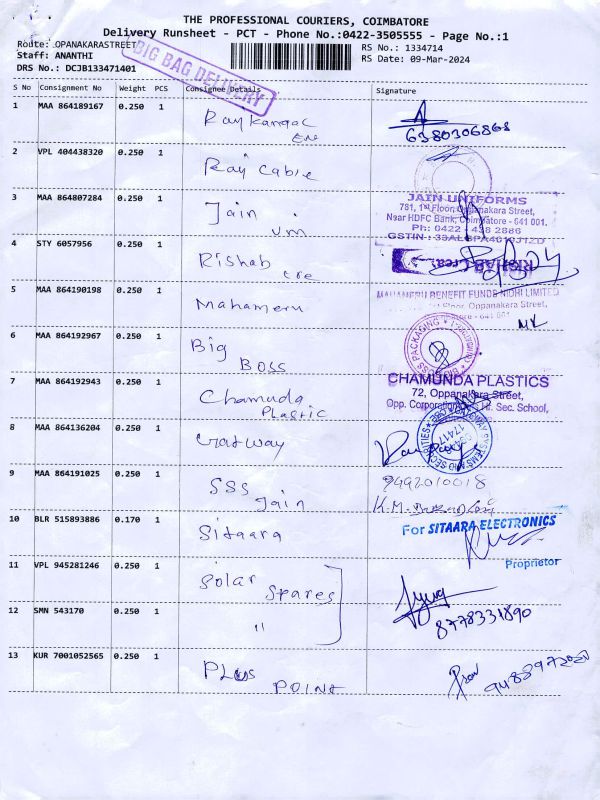 THE PROFESSIONAL COURIERS, COIMBATORE
Delivery Runsheet - PCT - Phone No.:0422-3505555 - Page No.:1
Route: OPANAKARASTREET
RS No.: 1334714
Staff: ANANTHI
RS Date: 09-Mar-2024
DRS No.: DCJB133471401
BIG BAG DELIVERY
S No Consignment No Weight PCS Consignee Details Signature
1 MAA 864189167 0.250 1
6380306868
2 VPL 404438320 0.250 1 Raj Cable
3 MAA 864807284 0.250 1 Jain
Uni
JAIN UNIFORMS
781, 1st Floor, Oppanakara Street,
Near HDFC Bank, Coimbatore - 641 001.
Ph: 0422 - 438 2886
4 STY 6057956 0.250 1 Rishab
cre
RISHAB Creat
5 MAA 864190198 0.250 1 Mahameru
MAHAMERU BENEFIT FUNDS NIDHI LIMITED
Floor, Oppanakara Street,
6 MAA 864192967 0.250 1 Big
Boss
7 MAA 864192943 0.250 1 Chamunda
Plastic
CHAMUNDA PLASTICS
72, Oppanakara Street,
Opp. Corporation Hr. Sec. School,
8 MAA 864136204 0.250 1 Gatway
9 MAA 864191025 0.250 1 SSS
Jain
9492010018
10 BLR 515893886 0.170 1 Sitaara
For SITAARA ELECTRONICS
Proprietor
11 VPL 945281246 0.250 1 Solar
Spares
12 SMN 543170 0.250 1 "
8778331890
13 KUR 7001052565 0.250 1 PLUS
POINT